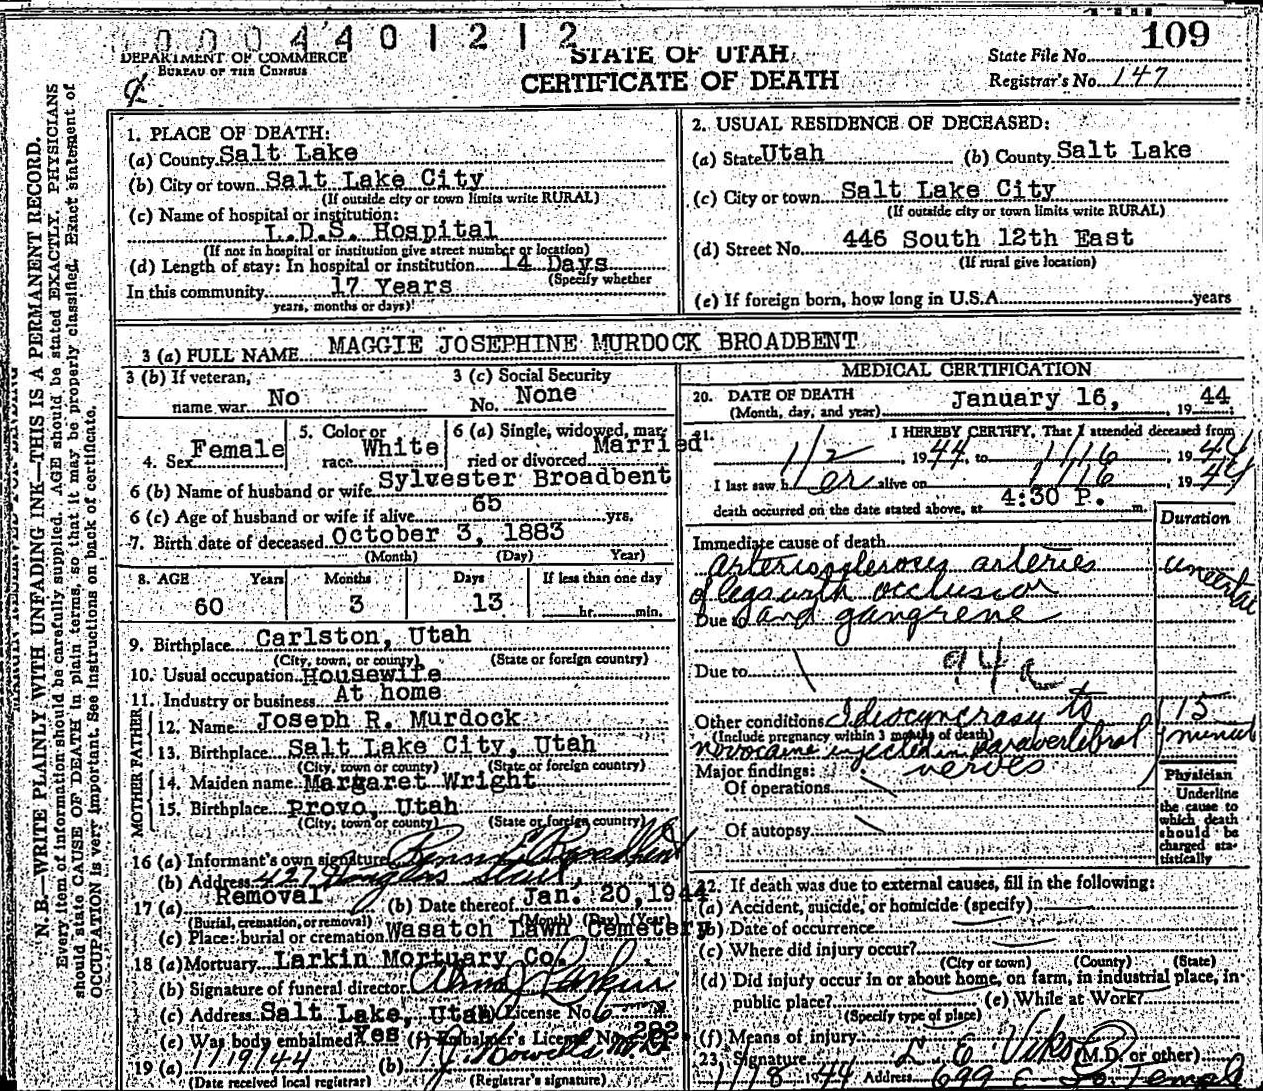 0004401212
109
DEPARTMENT OF COMMERCE
BUREAU OF THE CENSUS
STATE OF UTAH
CERTIFICATE OF DEATH
State File No.
Registrar's No. 147
N. B.—WRITE PLAINLY WITH UNFADING INK—THIS IS A PERMANENT RECORD.
Every item of information should be carefully supplied. AGE should be stated EXACTLY. PHYSICIANS
should state CAUSE OF DEATH in plain terms, so that it may be properly classified. Exact statement of
OCCUPATION is very important. See instructions on back of certificate.
1. PLACE OF DEATH:
(a) County Salt Lake
(b) City or town Salt Lake City
(If outside city or town limits write RURAL)
(c) Name of hospital or institution:
L.D.S. Hospital
(If not in hospital or institution give street number or location)
(d) Length of stay: In hospital or institution 14 Days
(Specify whether
In this community 17 Years
years, months or days)
2. USUAL RESIDENCE OF DECEASED:
(a) State Utah (b) County Salt Lake
(c) City or town Salt Lake City
(If outside city or town limits write RURAL)
(d) Street No. 446 South 12th East
(If rural give location)
(e) If foreign born, how long in U.S.A. years
3 (a) FULL NAME MAGGIE JOSEPHINE MURDOCK BROADBENT
3 (b) If veteran,
name war No
3 (c) Social Security
No. None
4. Sex Female
5. Color or
race White
6 (a) Single, widowed, mar-
ried or divorced Married
6 (b) Name of husband or wife Sylvester Broadbent
6 (c) Age of husband or wife if alive 65 yrs.
7. Birth date of deceased October 3, 1883
(Month) (Day) Year)
8. AGE Years Months Days If less than one day
60 3 13 hr. min.
9. Birthplace Carlston, Utah
(City, town, or county) (State or foreign country)
10. Usual occupation Housewife
11. Industry or business At home
FATHER
12. Name Joseph R. Murdock
13. Birthplace Salt Lake City, Utah
(City, town, or county) (State or foreign country)
MOTHER
14. Maiden name Margaret Wright
15. Birthplace Provo, Utah
(City, town or county) (State or foreign country)
16 (a) Informant's own signature
(b) Address 427 Douglas Street
17 (a) Removal (b) Date thereof Jan. 20, 1944
(Burial, cremation, or removal) (Month) (Day) (Year)
(c) Place: burial or cremation Wasatch Lawn Cemetery
18 (a) Mortuary Larkin Mortuary Co.
(b) Signature of funeral director Larkin
(c) Address Salt Lake, Utah License No.
(e) Was body embalmed Yes (f) Embalmer's License No. 282
19 (a) 1/19/44 (b)
(Date received local registrar) (Registrar's signature)
MEDICAL CERTIFICATION
20. DATE OF DEATH
(Month, day, and year) January 16, 1944
21. I HEREBY CERTIFY, That I attended deceased from
1/2, 1944, to 1/16, 1944
I last saw her alive on 1/16, 1944
death occurred on the date stated above, at 4:30 P. m.
Duration
Immediate cause of death
Arteriosclerosis arteries
of legs with occlusion
Due to and gangrene
Due to 94a
Other conditions Idiocyncrasy to 15
(Include pregnancy within 3 months of death)
novocaine injected in paravertebral
nerves
Major findings:
Of operations
Of autopsy
Physician
Underline
the cause to
which death
should be
charged sta-
tistically
22. If death was due to external causes, fill in the following:
(a) Accident, suicide, or homicide (specify)
(b) Date of occurrence
(c) Where did injury occur?
(City or town) (County) (State)
(d) Did injury occur in or about home, on farm, in industrial place, in
public place? (e) While at Work?
(Specify type of place)
(f) Means of injury
23. Signature L. E. Viko (M.D. or other)
1/18 1944 Address 699 E. So. Temple